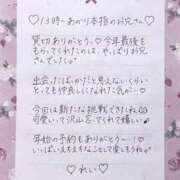 ♡13時〜あかり本指のお兄さん♡
貸切ありがとう♡今年最後を
もらってくれたのは、やっぱりお兄
さんでした♡
出会ったばかりだと思えないくらい
とっても仲良しになれた気が…♡
今回は新たな挑戦できたし
可愛いって沢山言ってくれて嬉しい♡
年始の予約もありがとう〜！♡
いっぱいえちえちなことして楽しもうね♡
♡れい♡